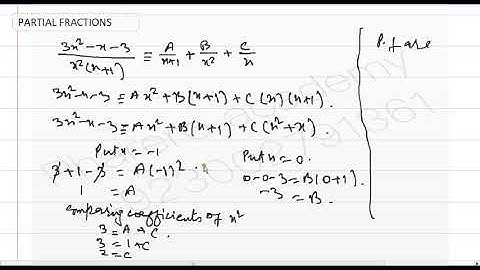 PARTIAL FRACTIONS
3x²-x-3 / x²(x+1) ≡ A/x+1 + B/x² + C/x
3x²-x-3 ≡ Ax² + B(x+1) + C(x)(x+1).
3x²-x-3 ≡ Ax² + B(x+1) + C(x²+x).
Put x = -1
3+1-3 = A(-1)²
1 = A
Put x = 0.
0-0-3 = B(0+1).
-3 = B.
Comparing coefficients of x²
3 = A + C.
3 = 1 + C
2 = C
P.f are